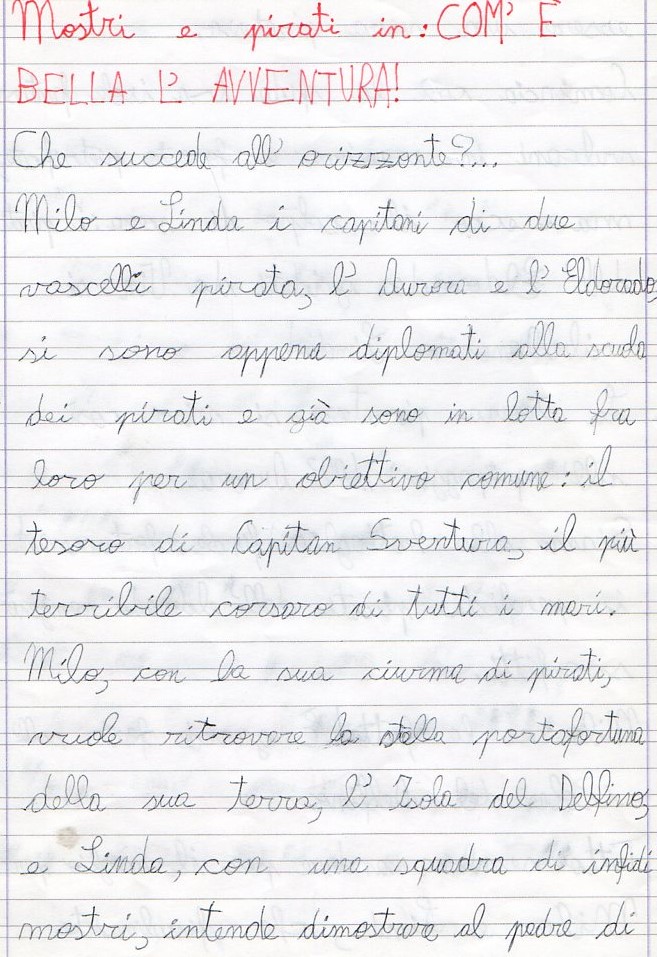 Mostri e pirati in: COM' È
BELLA L' AVVENTURA!
Che succede all' orizzonte?...
Milo e Linda i capitani di due
vascelli pirata, l' Aurora e l' Eldorado,
si sono appena diplomati alla scuola
dei pirati e già sono in lotta fra
loro per un obiettivo comune: il
tesoro di Capitan Sventura, il più
terribile corsaro di tutti i mari.
Milo, con la sua ciurma di pirati,
vuole ritrovare la stella portafortuna
della sua terra, l' Isola del Delfino,
e Linda, con una squadra di infidi
mostri, intende dimostrare al padre di